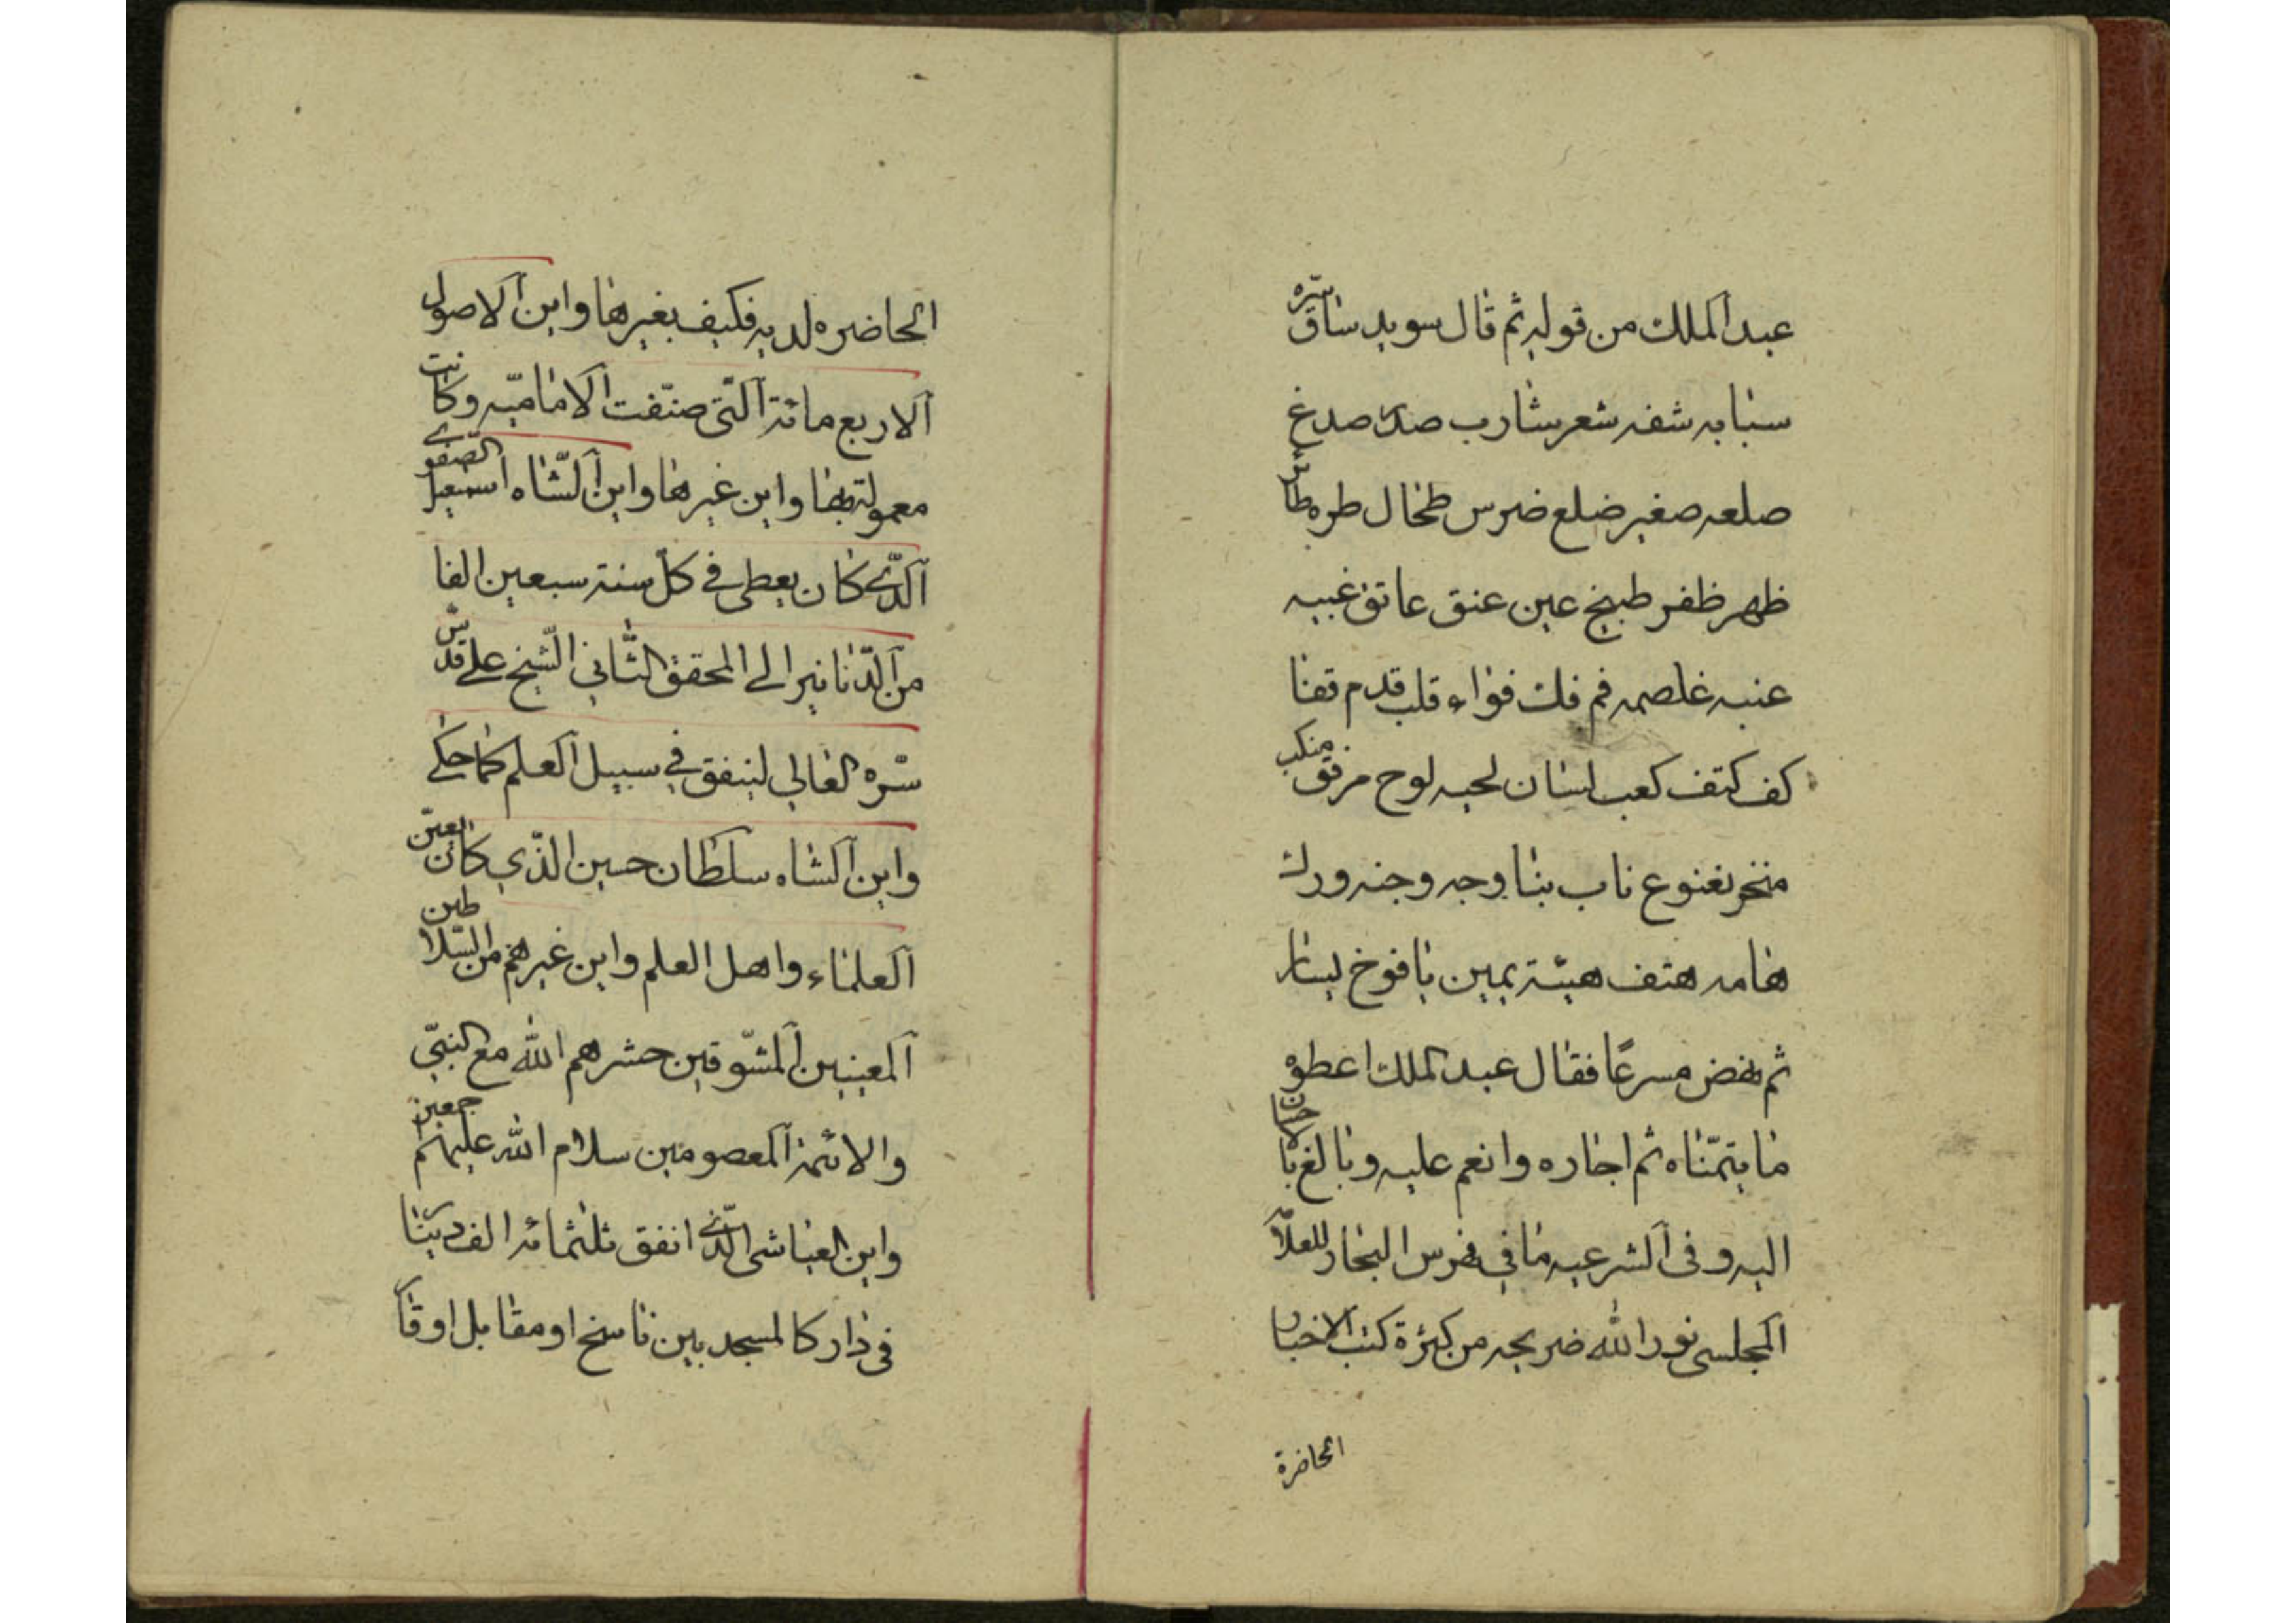 عبد الملك من قوله ثم قال سويد ساق سرّه
سبابه شفه شعر شارب صدر صدغ
صلعه صغير ضلع ضرس طحال طره طائر
ظهر ظفر طبيخ عين عنق عاتق غبيه
عنبه غلصمه فم فك فؤاد قلب قدم قفا
كف كتف كعب لسان لحيه لوح مرفق منكب
منخر نغنوع ناب بنا وجه وجنه ورك
هامه هتف هيئة يمين يافوخ يسار
ثم نهض مسرعًا فقال عبد الملك اعطوه
ما يتمنّاه ثم اجازه وانعم عليه وبالغ بالاحسان
اليه وفى الشرعيه ما في فهرس البحار للعلّا
المجلسى نور الله ضريحه من كثرة كتب الاخبار
الحاضرة
الحاضره لديه فكيف بغيرها واين الاصول
الاربع مائة الّتى صنّفت الاماميّه وكانت
معمولة بها واين غيرها واين الشّاه اسمعيل الصّفوے
الّذى كان يعطى في كلّ سنة سبعين الفا
من الدّنانير الى المحقق الثّانى الشّيخ على قدّس
سّره العالي لينفق في سبيل العلم كما حكى
واين الشاه سلطان حسين الذّي كان يعيّن
العلماء واهل العلم واين غيرهم من السّلاطين
المعينين المشّوقين حشرهم الله مع النبىّ
والائمة المعصومين سلام الله عليهم اجمعين
واين العياشى الّذى انفق ثلثمائه الف دينار
فى دار كالمسجد بين ناسخ او مقابل او قا